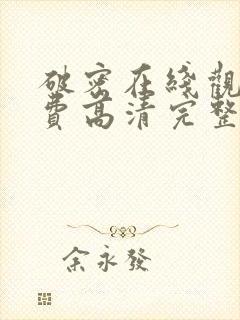 破密在綫觀
費高清完整
余永發